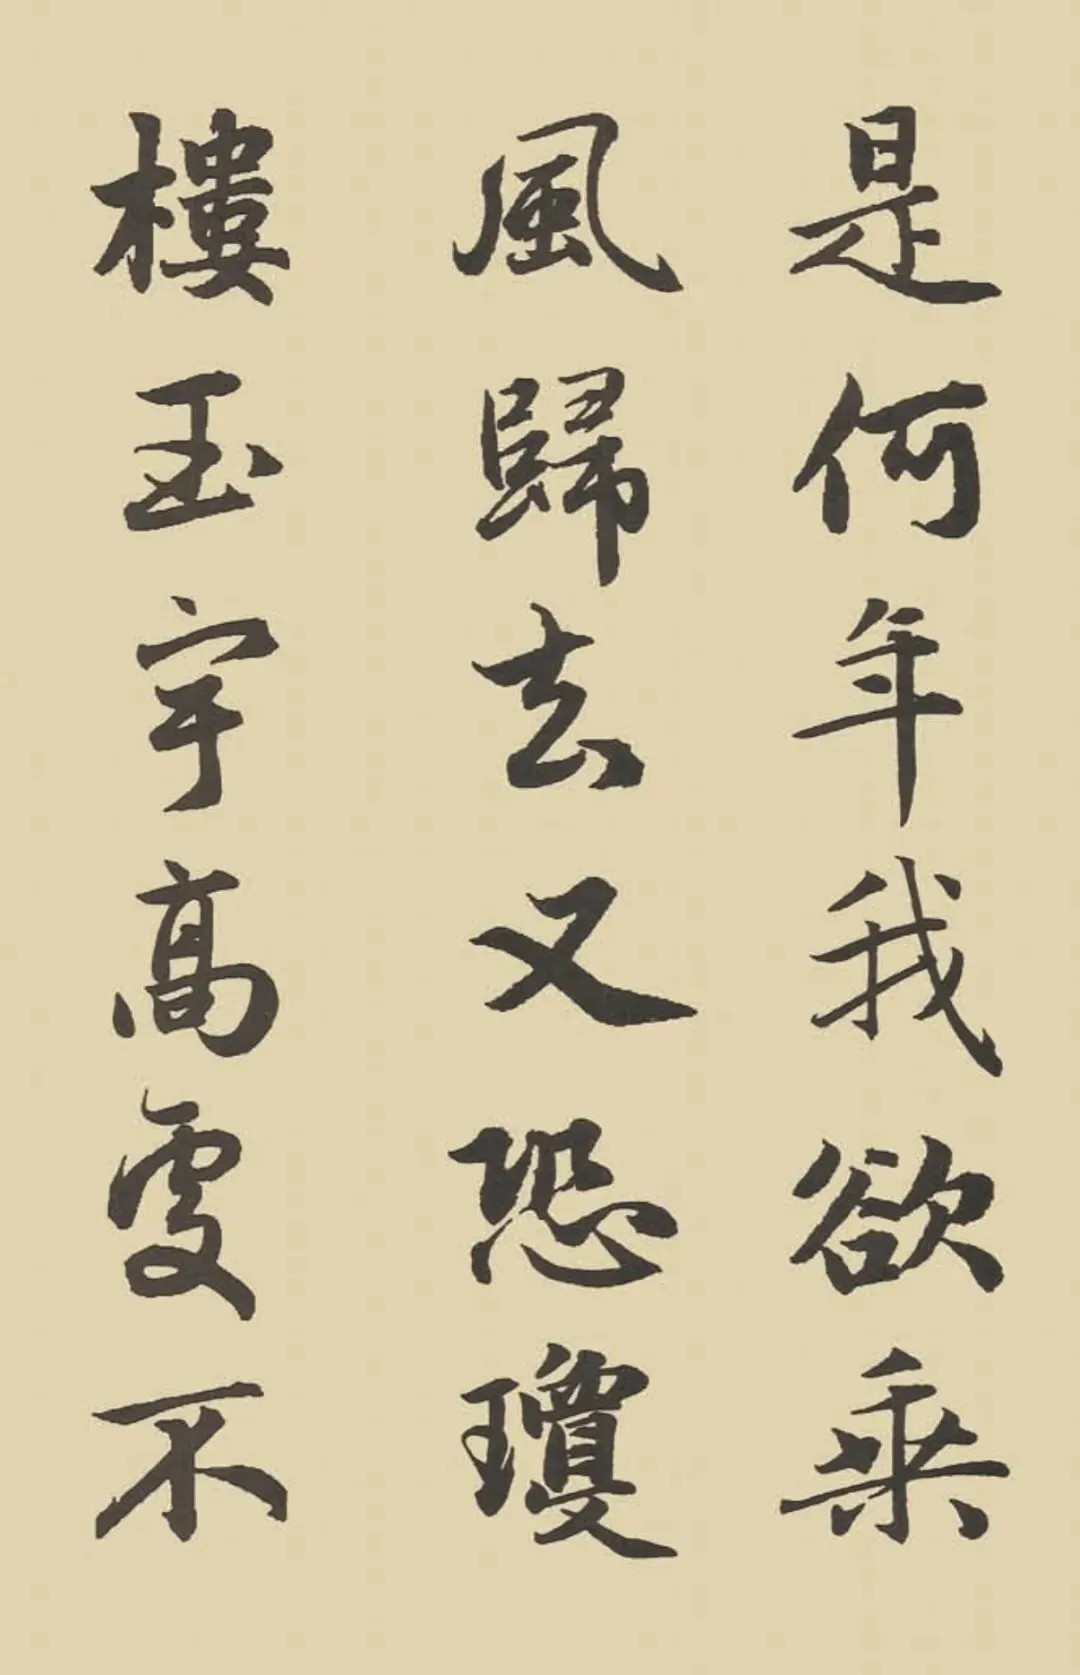 是何年我欲乘
風歸去又恐瓊
樓玉宇高處不